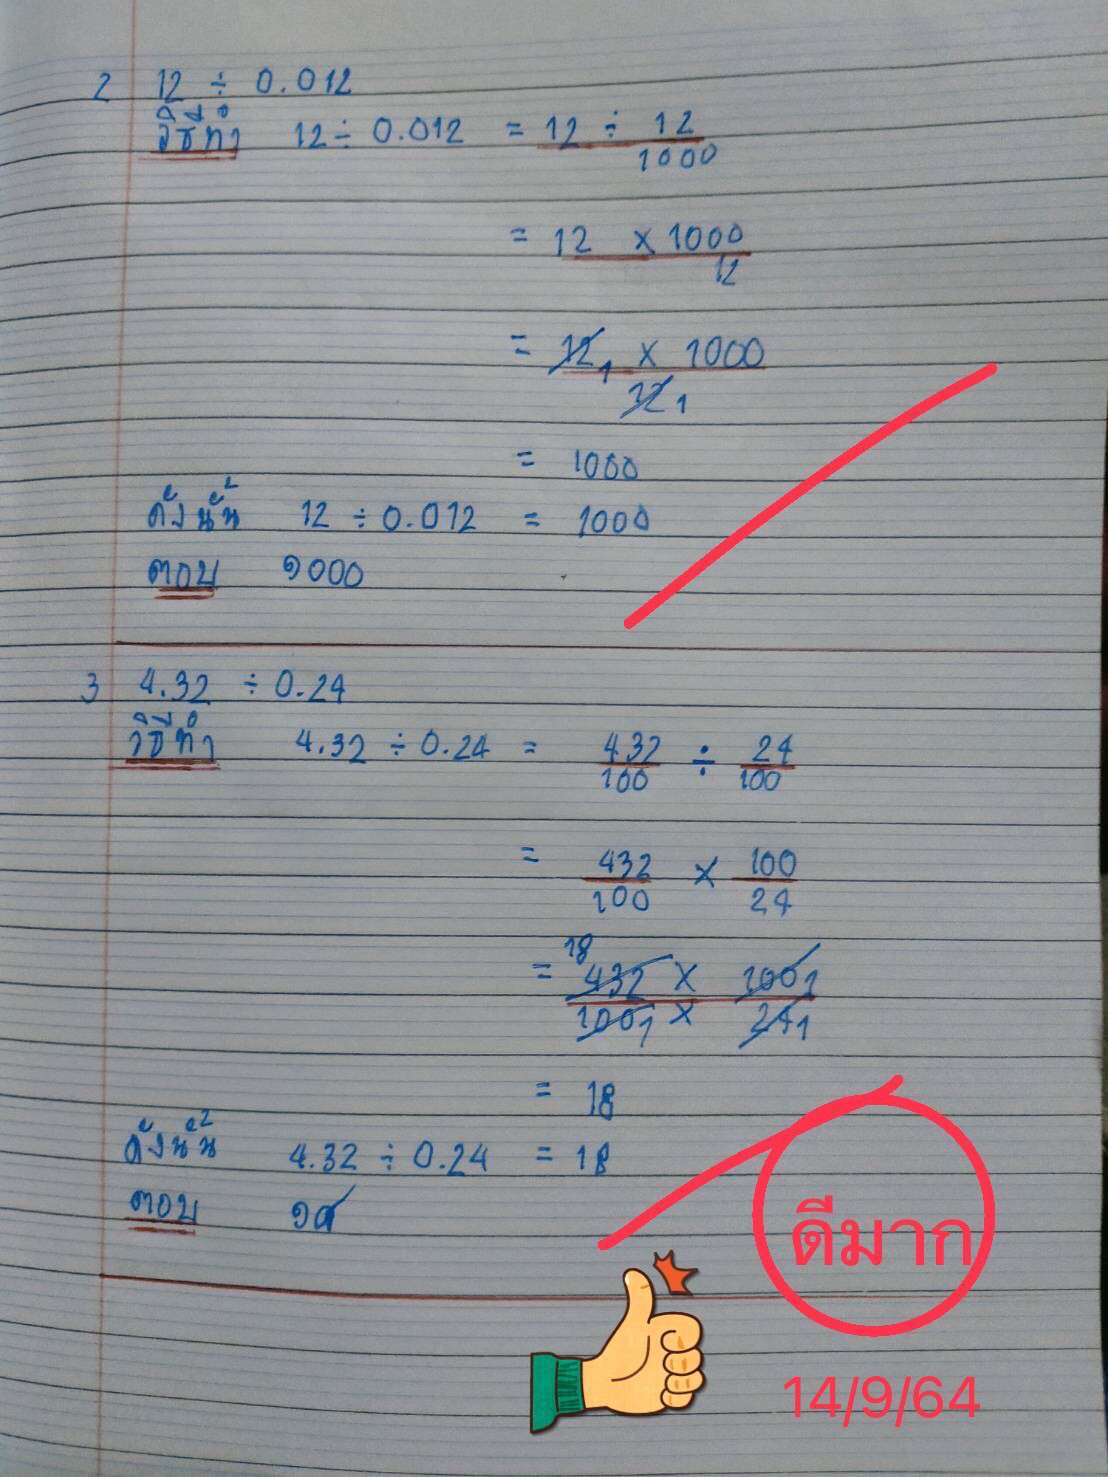 2 12 ÷ 0.012
วิธีทำ 12 ÷ 0.012 = 12 ÷ 12/1000
= 12 × 1000/12
= 12 1 × 1000 / 12 1
= 1000
ดังนั้น 12 ÷ 0.012 = 1000
ตอบ ๑000
3 4.32 ÷ 0.24
วิธีทำ 4.32 ÷ 0.24 = 432/100 ÷ 24/100
= 432/100 × 100/24
18
= 432 × 100 1 / 100 1 × 24 1
= 18
ดังนั้น 4.32 ÷ 0.24 = 18
ตอบ ๑๘
ดีมาก
14/9/64